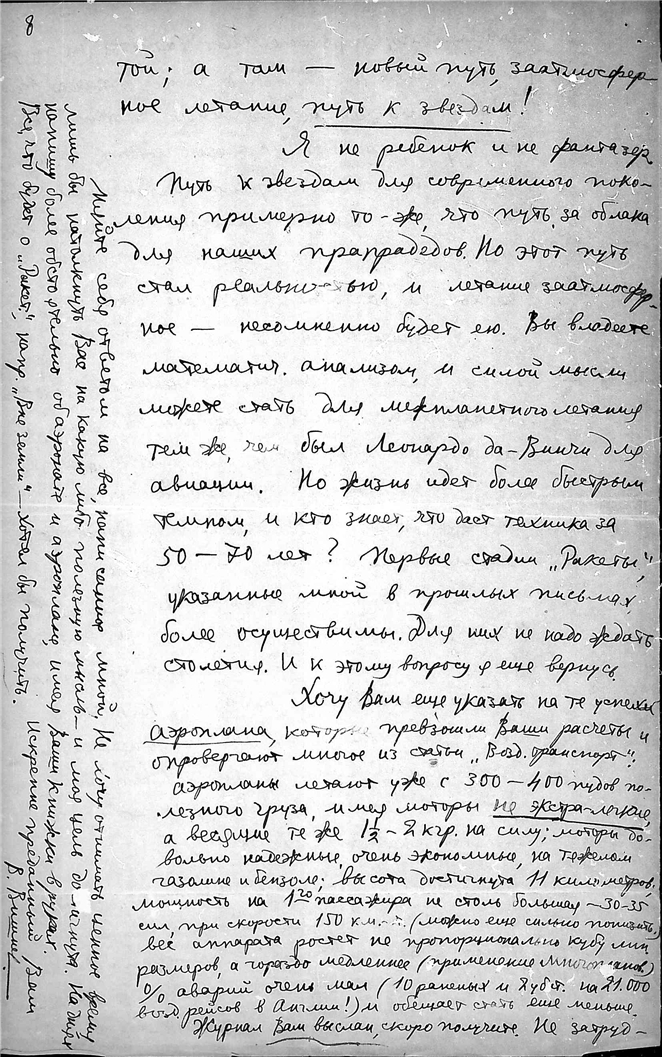 8
той; а там — новый путь, заатмосфер-
ное летание, путь к звездам!
Я не ребенок и не фантазер.
Путь к звездам для современного поко-
ления примерно то-же, что путь за облака
для наших прапрадедов. Но этот путь
стал реальностью, и летание заатмосфер-
ное — несомненно будет ею. Вы владеете
математич. анализом, и силой мысли
можете стать для межпланетного летания
тем же, чем был Леонардо да-Винчи для
авиации. Но жизнь идет более быстрым
темпом, и кто знает, что даст техника за
50 — 70 лет? Первые стадии „Ракеты",
указанные мной в прошлых письмах
более осуществимы. Для них не надо ждать
столетия. И к этому вопросу я еще вернусь.
Хочу Вам еще указать на те успехи
аэроплана, которые превзошли Ваши расчеты и
опровергают многое из статьи „Возд. транспорт".
Аэропланы летают уже с 300 — 400 пудов по-
лезного груза, имея моторы не экстра-легкие,
а весящие те же 1½ - 2 кгр. на силу; моторы до-
вольно надежные, очень экономные, на тяжелом
газолине и бензоле; высота достигнута 11 километров,
мощность на 1го пассажира не столь большая — 30-35
сил, при скорости 150 км. (можно еще сильно понизить,)
вес аппарата ростет не пропорционально кубу лин.
размеров, а гораздо медленнее (применение многопланов,)
% аварий очень мал (10 раненых и 2 убит. на 21.000
возд. рейсов в Англии!) и обещает стать еще меньше.
Журнал Вам выслан, скоро получите. Не затруд-
няйте себя ответом на все, написанное мной. Не хочу отнимать ценное время
лишь бы натолкнуть Вас на какую либо полезную мысль — и моя цель достигнута. На днях
напишу более обстоятельно об аэронате и аэроплане, имея Ваши книжки в руках.
Все, что будет о „Ракет", напр. „Вне земли" — хотел бы получить.
Искренне преданный Вам